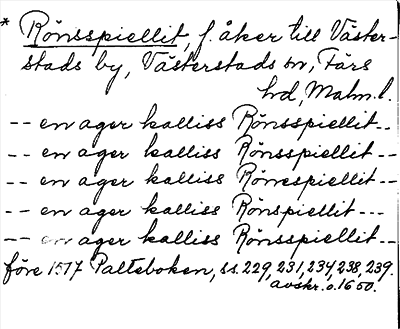 * Rönsspiellit, f. åker till Väster-
stads by, Västerstads sn, Färs
hd, Malm. l.
-- en ager kalliss Rönsspiellit --
-- en ager kalliss Rönsspiellit ---
-- en ager kalliss Rönespiellit ---
-- en ager kalliss Rönspiellit ---
-- en ager kalliss Rönsspiellit --
före 1517 Palteboken, ss. 229, 231, 234, 238, 239.
avskr. o. 1650.